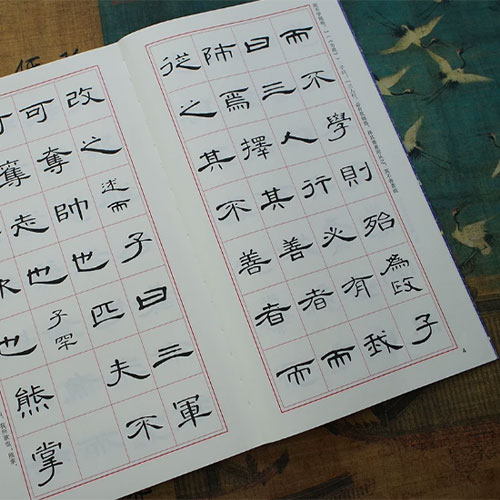 而不學則殆
為政
子
曰三人行必有我
師焉擇其善者而
從之其不善者而
改之
述而
子曰三軍
可奪帥也匹夫不
可奪志也
子罕
也熊掌